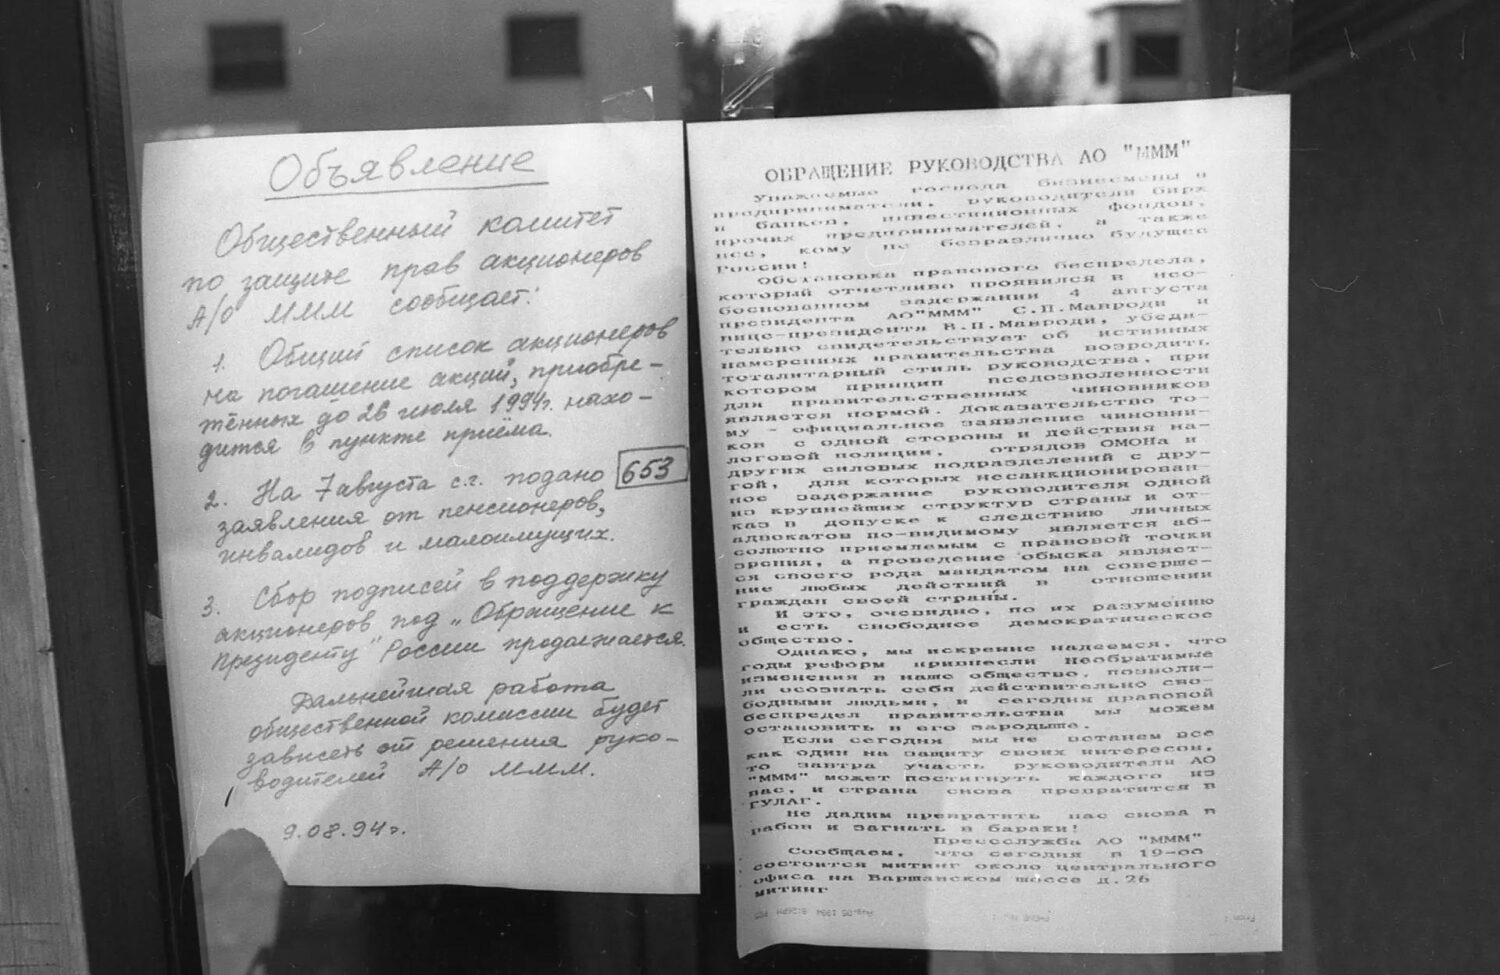 Объявление
Общественный комитет
по защите прав акционеров
А/О МММ сообщает:
1. Общий список акционеров
на погашение акций, приобре-
тённых до 26 июля 1994г. нахо-
дится в пункте приёма.
2. На 7 августа с.г. подано 653
заявления от пенсионеров,
инвалидов и малоимущих.
3. Сбор подписей в поддержку
акционеров под „Обращение к
Президенту" России продолжается.
Дальнейшая работа
общественной комиссии будет
зависеть от решения руко-
водителей А/о МММ.
9.08.94г.
ОБРАЩЕНИЕ РУКОВОДСТВА АО "МММ"
Уважаемые господа бизнесмены и
предприниматели, руководители бирж
и банков, инвестиционных фондов,
прочих предпринимателей, а также
все, кому не безразлично будущее
России!
Обстановка правового беспредела,
который отчетливо проявился в нео-
боснованном задержании 4 августа
президента АО"МММ" С.П.Мавроди и
вице-президента В.П.Мавроди, убеди-
тельно свидетельствует об истинных
намерениях правительства возродить
тоталитарный стиль руководства, при
котором принцип вседозволенности
для правительственных чиновников
является нормой. Доказательство то-
му - официальное заявление чиновни-
ков с одной стороны и действия на-
логовой полиции, отрядов ОМОНа и
других силовых подразделений с дру-
гой, для которых несанкционирован-
ное задержание руководителя одной
из крупнейших структур страны и от-
каз в допуске к следствию личных
адвокатов по-видимому является аб-
солютно приемлемым с правовой точки
зрения, а проведение обыска являет-
ся своего рода мандатом на соверше-
ние любых действий в отношении
граждан своей страны.
И это, очевидно, по их разумению
и есть свободное демократическое
общество.
Однако, мы искренне надеемся, что
годы реформ принесли необратимые
изменения в наше общество, позволи-
ли осознать себя действительно сво-
бодными людьми, и сегодня правовой
беспредел правительства мы можем
остановить в его зародыше.
Если сегодня мы не встанем все
как один на защиту своих интересов,
то завтра участь руководители АО
"МММ" может постигнуть каждого из
нас, и страна снова превратится в
ГУЛАГ.
Не дадим превратить нас снова в
рабов и загнать в бараки!
Прессслужба АО "МММ"
Сообщаем, что сегодня в 19-00
состоится митинг около центрального
офиса на Варшавском шоссе д.26
митинг